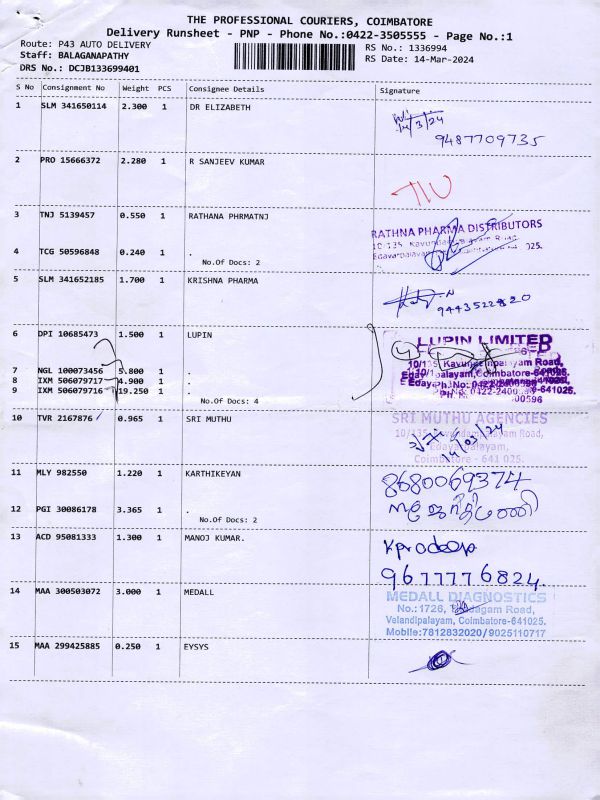 THE PROFESSIONAL COURIERS, COIMBATORE
Delivery Runsheet - PNP - Phone No.:0422-3505555 - Page No.:1
Route: P43 AUTO DELIVERY
RS No.: 1336994
Staff: BALAGANAPATHY
RS Date: 14-Mar-2024
DRS No.: DCJB133699401
S No Consignment No Weight PCS Consignee Details Signature
1 SLM 341650114 2.300 1 DR ELIZABETH
14/3/24
9487709735
2 PRO 15666372 2.280 1 R SANJEEV KUMAR
3 TNJ 5139457 0.550 1 RATHANA PHRMATNJ
RATHNA PHARMA DISTRIBUTORS
4 TCG 50596848 0.240 1 .
No.Of Docs: 2
5 SLM 341652185 1.700 1 KRISHNA PHARMA
9443522820
6 DPI 10685473 1.500 1 LUPIN
LUPIN LIMITED
7 NGL 100073456 5.800 1 .
8 IXM 506079717 4.900 1 .
9 IXM 506079716 19.250 1 .
No.Of Docs: 4
10 TVR 2167876 0.965 1 SRI MUTHU
SRI MUTHU AGENCIES
14/03/24
Coimbatore - 641 025.
11 MLY 982550 1.220 1 KARTHIKEYAN
8680069374
12 PGI 30086178 3.365 1 .
No.Of Docs: 2
13 ACD 95081333 1.300 1 MANOJ KUMAR.
Kpradeep
9677776824
14 MAA 300503072 3.000 1 MEDALL
MEDALL DIAGNOSTICS
No.:1726, Road,
Velandipalayam, Coimbatore-641025.
Mobile:7812832020/9025110717
15 MAA 299425885 0.250 1 EYSYS